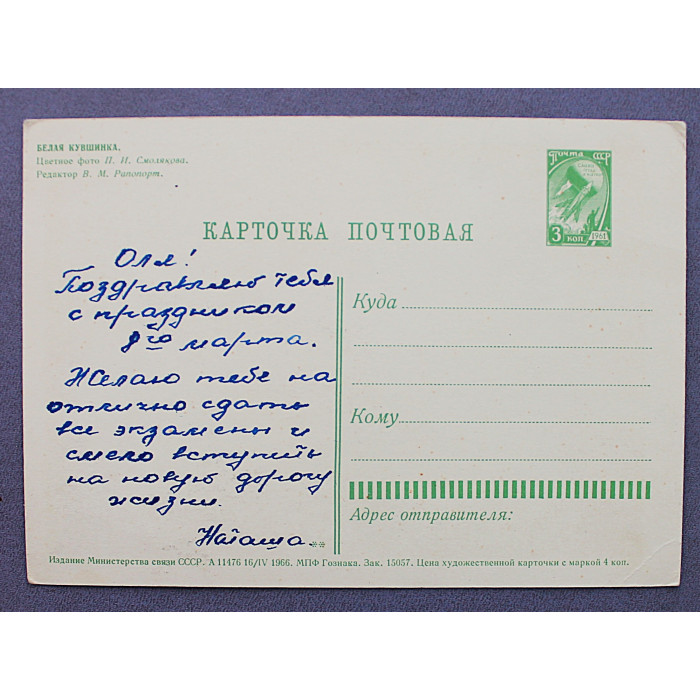 БЕЛАЯ КУВШИНКА.
Цветное фото П. И. Смолякова.
Редактор В. М. Рапопорт.
ПОЧТА СССР
3 КОП.
1961
КАРТОЧКА ПОЧТОВАЯ
Оля!
Поздравляю тебя
с праздником
8го марта.
Желаю тебе на
отлично сдать
все экзамены и
смело вступить
на новую дорогу
жизни.
Наташа.
Куда
Кому
Адрес отправителя:
Издание Министерства связи СССР. А 11476 16/IV 1966. МПФ Гознака. Зак. 15057. Цена художественной карточки с маркой 4 коп.